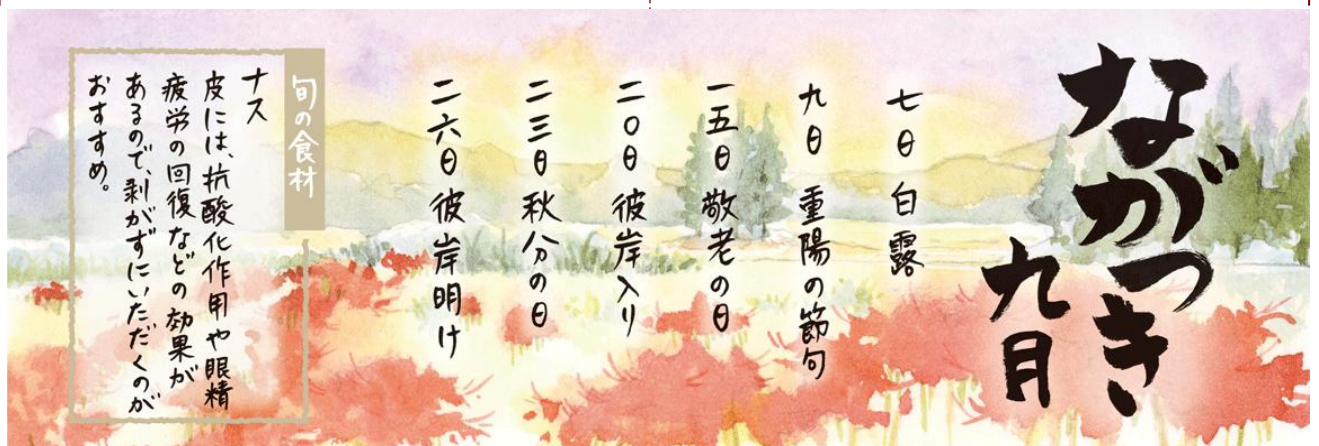 ながつき
九月
七日 白露
九日 重陽の節句
一五日 敬老の日
二〇日 彼岸入り
二三日 秋分の日
二六日 彼岸明け
旬の食材
ナス
皮には、抗酸化作用や眼精
疲労の回復などの効果が
あるので、剥がずにいただくのが
おすすめ。